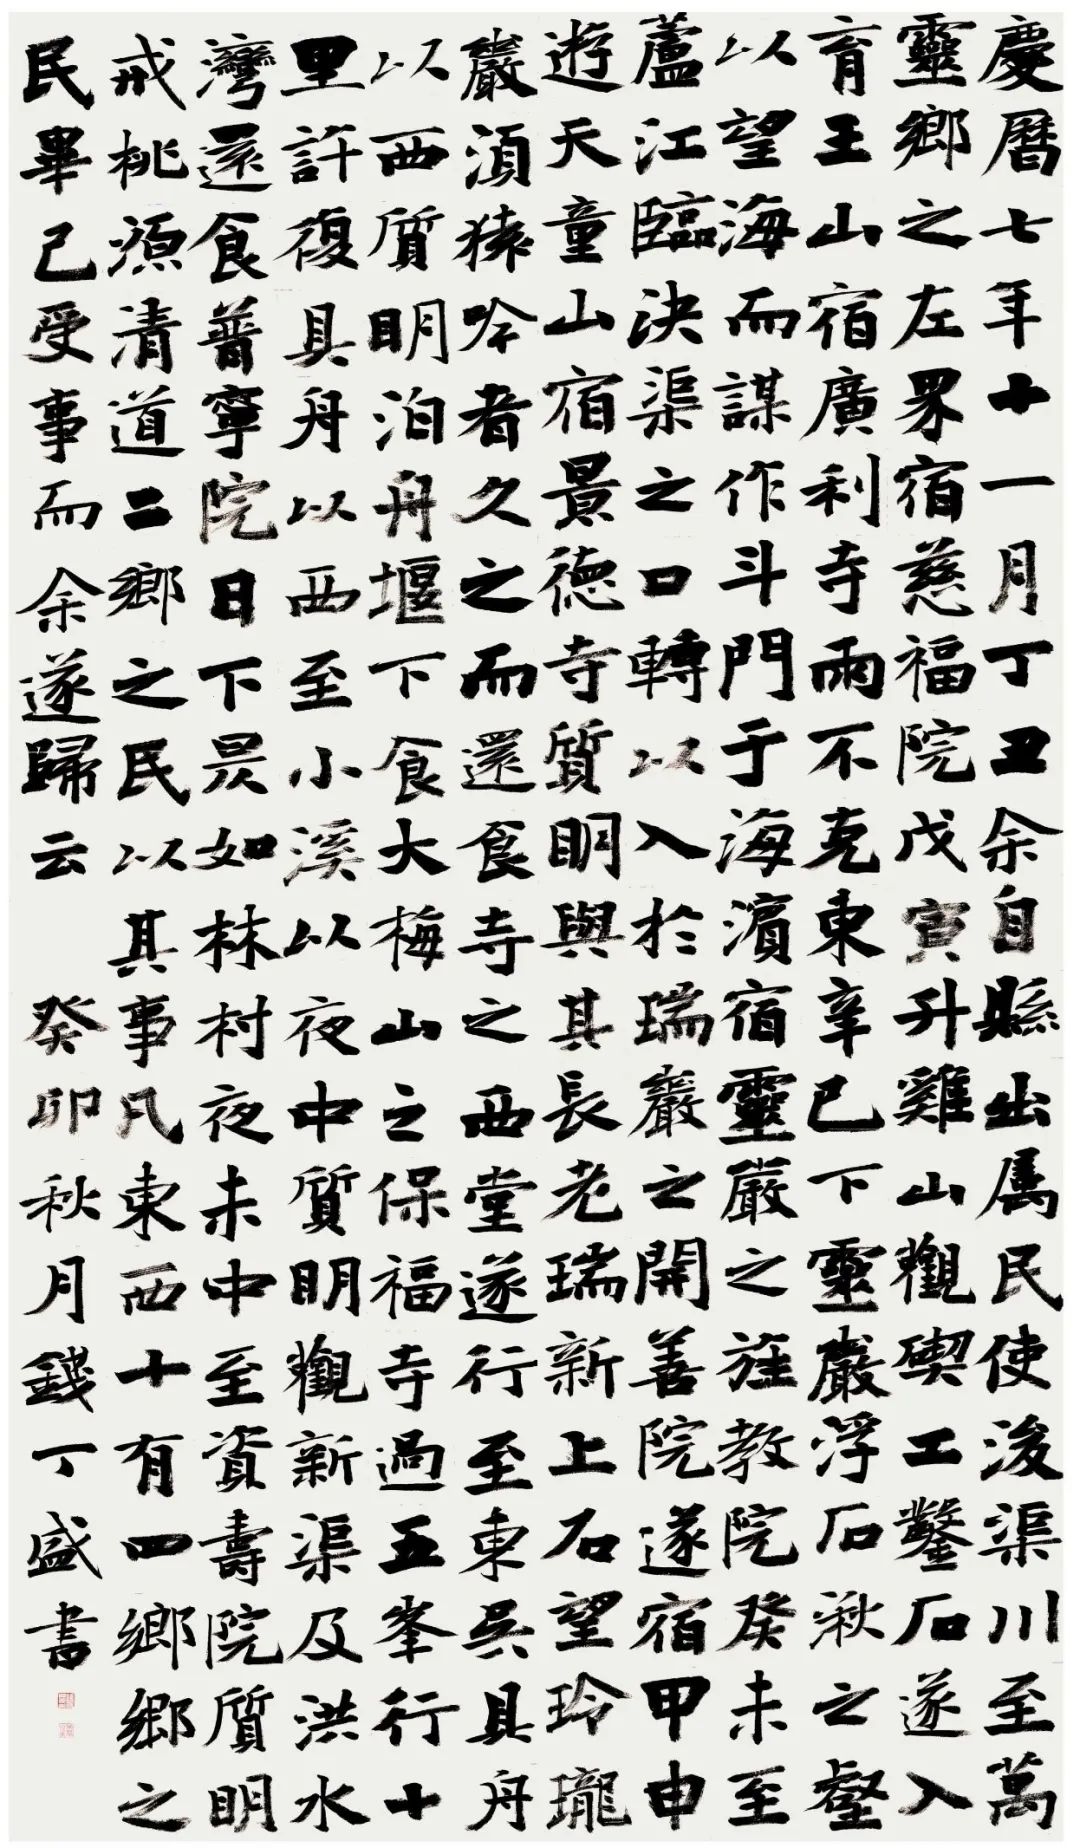 慶曆七年十一月丁丑余自縣出屬民使浚渠川至萬
靈鄉之左界宿慈福院戊寅升雞山觀碶工鑿石遂入
育王山宿廣利寺雨不克東辛巳下靈巖浮石湫之壑
以望海而謀作斗門于海濱宿靈巖之旌教院癸未至
蘆江臨決渠之口轉以入於瑞巖之開善院遂宿甲申
遊天童山宿景德寺質明與其長老瑞新上石望玲瓏
巖湏猿吟者久之而還食寺之西堂遂行至東吳具舟
以西質明泊舟堰下食大梅山之保福寺過五峯行十
里許復具舟以西至小溪以夜中質明觀新渠及洪水
灣還食普寧院日下昃如林村夜未中至資壽院質明
戒桃源清道二鄉之民以其事凡東西十有四鄉鄉之
民畢已受事而余遂歸云 癸卯秋月錢丁盛書